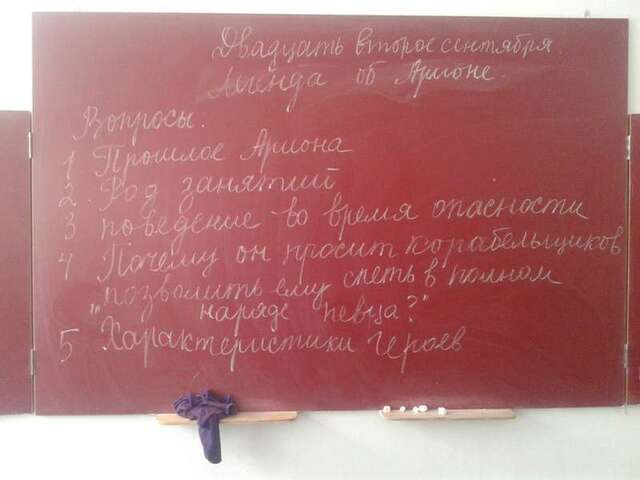 Двадцать второе сентября.
Легенда об Арионе.
Вопросы.
1 Прошлое Ариона
2. Род занятий
3 поведение во время опасности
4 Почему он просит корабельщиков
позволить ему спеть в полном
"наряде певца?"
5 Характеристики героев